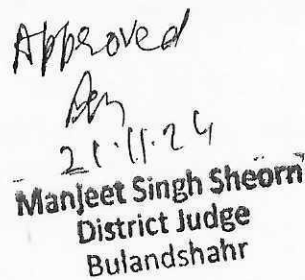 Approved
21.11.24
Manjeet Singh Sheorn
District Judge
Bulandshahr